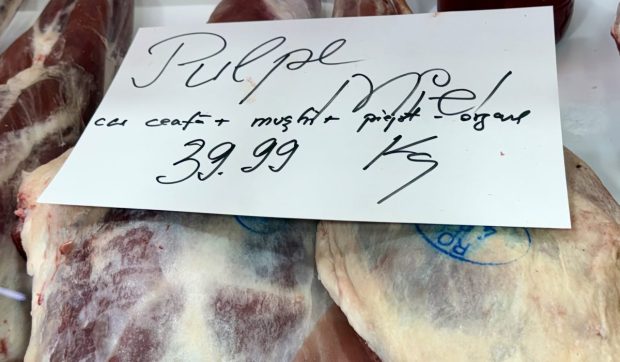 Pulpe
Miel
cu ceafă + mușchi + piept - organe
39.99 Kg
RO